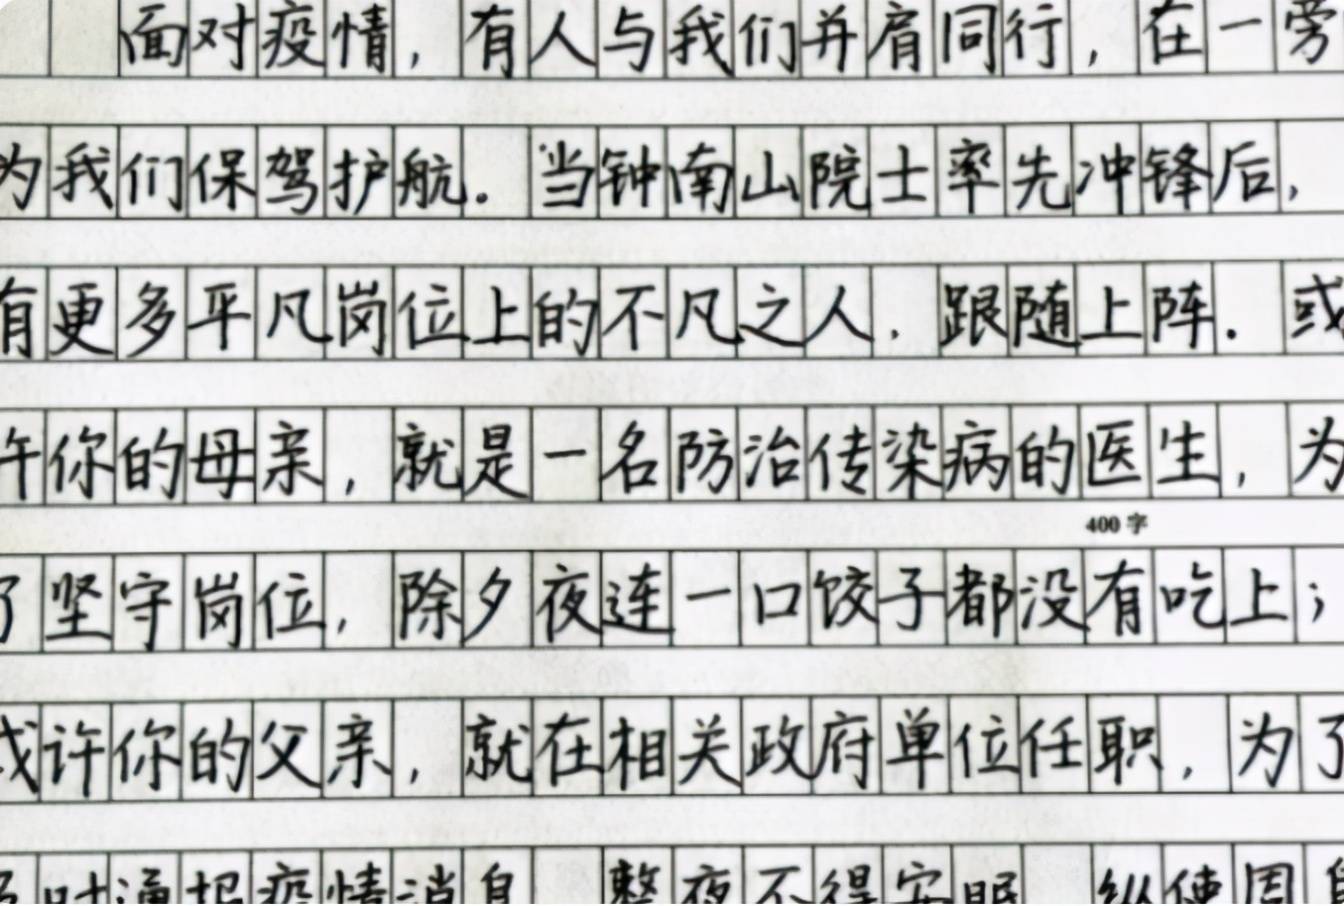 面对疫情，有人与我们并肩同行，在一旁
为我们保驾护航。当钟南山院士率先冲锋后，
有更多平凡岗位上的不凡之人，跟随上阵。或
许你的母亲，就是一名防治传染病的医生，为
400字
了坚守岗位，除夕夜连一口饺子都没有吃上；
或许你的父亲，就在相关政府单位任职，为了
时通报疫情消息 整夜不得安眠 纵使周